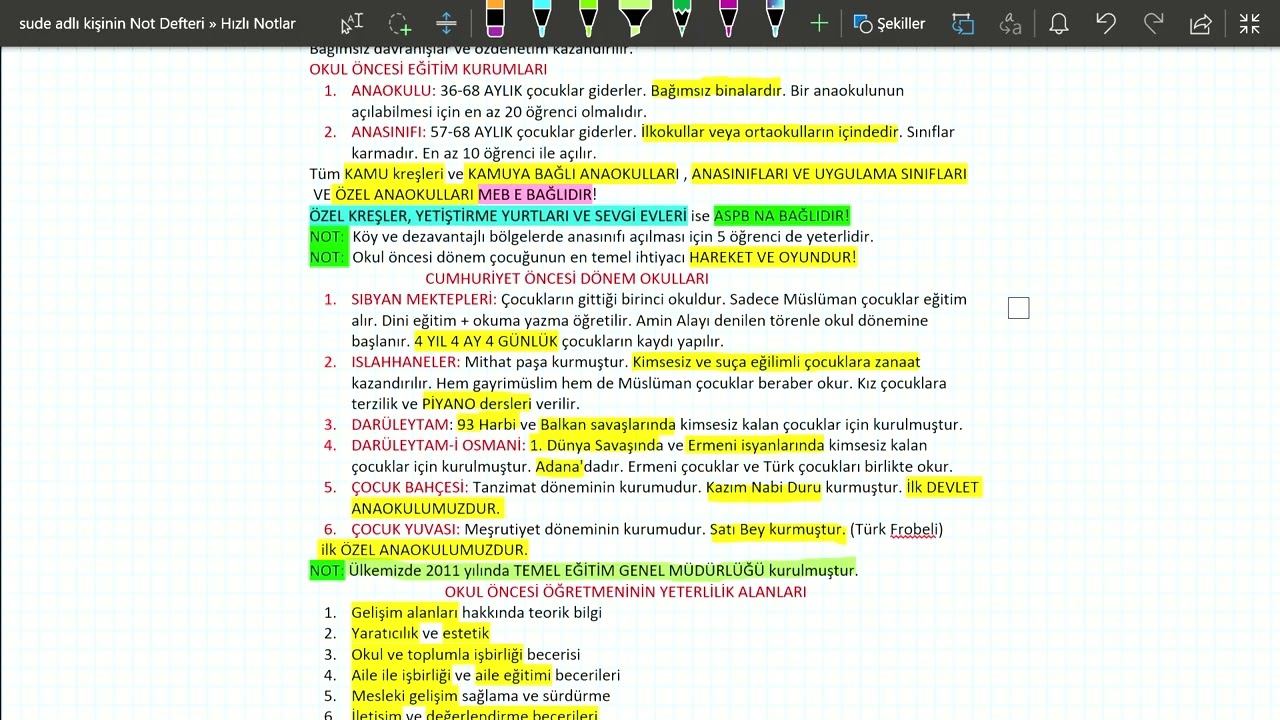 sude adlı kişinin Not Defteri » Hızlı Notlar
Şekiller
Bağımsız davranışlar ve özdenetim kazandırılır.
OKUL ÖNCESİ EĞİTİM KURUMLARI
1. ANAOKULU: 36-68 AYLIK çocuklar giderler. Bağımsız binalardır. Bir anaokulunun
açılabilmesi için en az 20 öğrenci olmalıdır.
2. ANASINIFI: 57-68 AYLIK çocuklar giderler. İlkokullar veya ortaokulların içindedir. Sınıflar
karmadır. En az 10 öğrenci ile açılır.
Tüm KAMU kreşleri ve KAMUYA BAĞLI ANAOKULLARI , ANASINIFLARI VE UYGULAMA SINIFLARI
VE ÖZEL ANAOKULLARI MEB E BAĞLIDIR!
ÖZEL KREŞLER, YETİŞTİRME YURTLARI VE SEVGİ EVLERİ ise ASPB NA BAĞLIDIR!
NOT: Köy ve dezavantajlı bölgelerde anasınıfı açılması için 5 öğrenci de yeterlidir.
NOT: Okul öncesi dönem çocuğunun en temel ihtiyacı HAREKET VE OYUNDUR!
CUMHURİYET ÖNCESİ DÖNEM OKULLARI
1. SIBYAN MEKTEPLERİ: Çocukların gittiği birinci okuldur. Sadece Müslüman çocuklar eğitim
alır. Dini eğitim + okuma yazma öğretilir. Amin Alayı denilen törenle okul dönemine
başlanır. 4 YIL 4 AY 4 GÜNLÜK çocukların kaydı yapılır.
2. ISLAHHANELER: Mithat paşa kurmuştur. Kimsesiz ve suça eğilimli çocuklara zanaat
kazandırılır. Hem gayrimüslim hem de Müslüman çocuklar beraber okur. Kız çocuklara
terzilik ve PİYANO dersleri verilir.
3. DARÜLEYTAM: 93 Harbi ve Balkan savaşlarında kimsesiz kalan çocuklar için kurulmuştur.
4. DARÜLEYTAM-İ OSMANİ: 1. Dünya Savaşında ve Ermeni isyanlarında kimsesiz kalan
çocuklar için kurulmuştur. Adana'dadır. Ermeni çocuklar ve Türk çocukları birlikte okur.
5. ÇOCUK BAHÇESİ: Tanzimat döneminin kurumudur. Kazım Nabi Duru kurmuştur. İlk DEVLET
ANAOKULUMUZDUR.
6. ÇOCUK YUVASI: Meşrutiyet döneminin kurumudur. Satı Bey kurmuştur. (Türk Frobeli)
ilk ÖZEL ANAOKULUMUZDUR.
NOT: Ülkemizde 2011 yılında TEMEL EĞİTİM GENEL MÜDÜRLÜĞÜ kurulmuştur.
OKUL ÖNCESİ ÖĞRETMENİNİN YETERLİLİK ALANLARI
1. Gelişim alanları hakkında teorik bilgi
2. Yaratıcılık ve estetik
3. Okul ve toplumla işbirliği becerisi
4. Aile ile işbirliği ve aile eğitimi becerileri
5. Mesleki gelişim sağlama ve sürdürme
6. İletişim ve değerlendirme becerileri